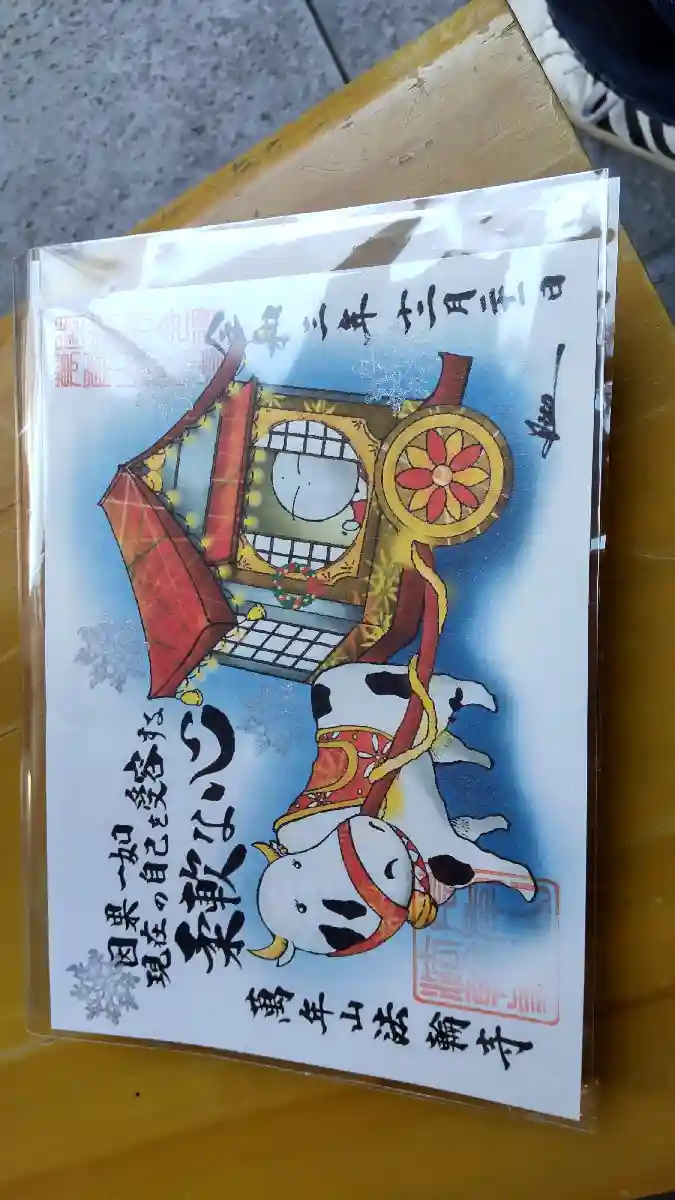 令和三年十二月二十一日
因果一如
現在の自己を受容する
柔軟な心
萬年山法輪寺